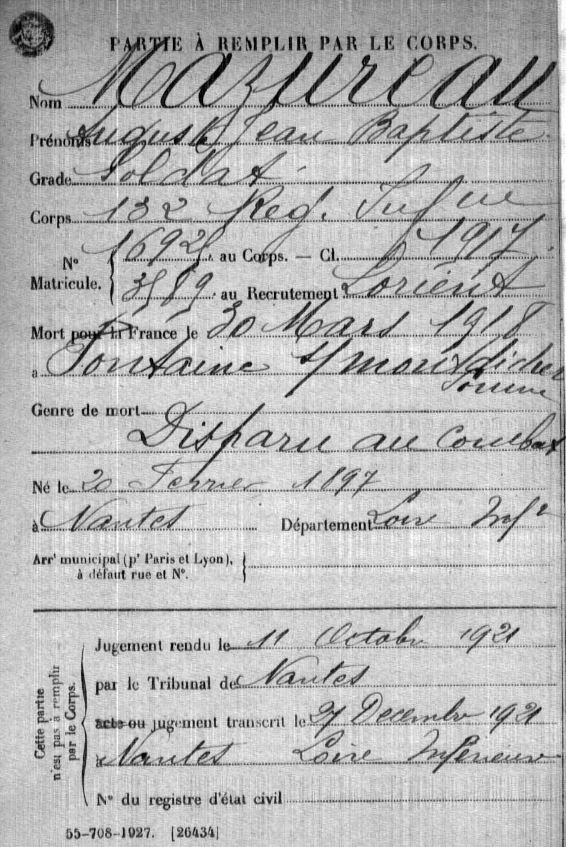 PARTIE À REMPLIR PAR LE CORPS.
Nom Mazureau
Prénoms Auguste Jean Baptiste
Grade Soldat
Corps 132 Reg. Inf rie
N° Matricule. { 16925 au Corps. — Cl. 1917
3589 au Recrutement Lorient
Mort pour la France le 30 Mars 1918
à Fontaine s/ montdidier Somme
Genre de mort
Disparu au Combat
Né le 20 Fevrier 1897
à Nantes Département Loire Infre
Arrt municipal (pr Paris et Lyon),
à défaut rue et N°.
Cette partie n'est pas à remplir par le Corps.
Jugement rendu le 11 Octobre 1921
par le Tribunal de Nantes
acte ou jugement transcrit le 27 Decembre 1921
à Nantes Loire Inferieure
N° du registre d'état civil
55-708-1927. [26434]